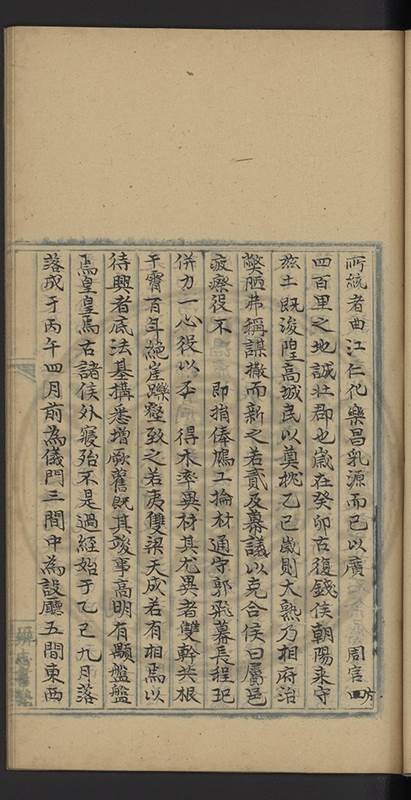 所統者曲江仁化樂昌乳源而已以廣 周官四方
四百里之地誠壮郡也嵗在癸卯古復錢侯朝陽来守
兹土既浚隍高城民以奠枕乙巳嵗則大熟乃相府治
樊陋弗稱謀撤而新之若貳及幕議以克合侯曰屬邑
疲瘵役不 即捐俸鳩工掄材通守郭飛幕長程玘
併力一心役以不 得木率異材其尤異者雙幹共根
干霽百年絶崖躒壑致之若夷雙梁天成若有相焉以
待興者底法基搆悉增厥舊既其竣事高明有顯盤盤
焉皇皇焉古諸侯外寝殆不是過經始于乙巳九月落
落成于丙午四月前為儀門三間中為設廳五間東西